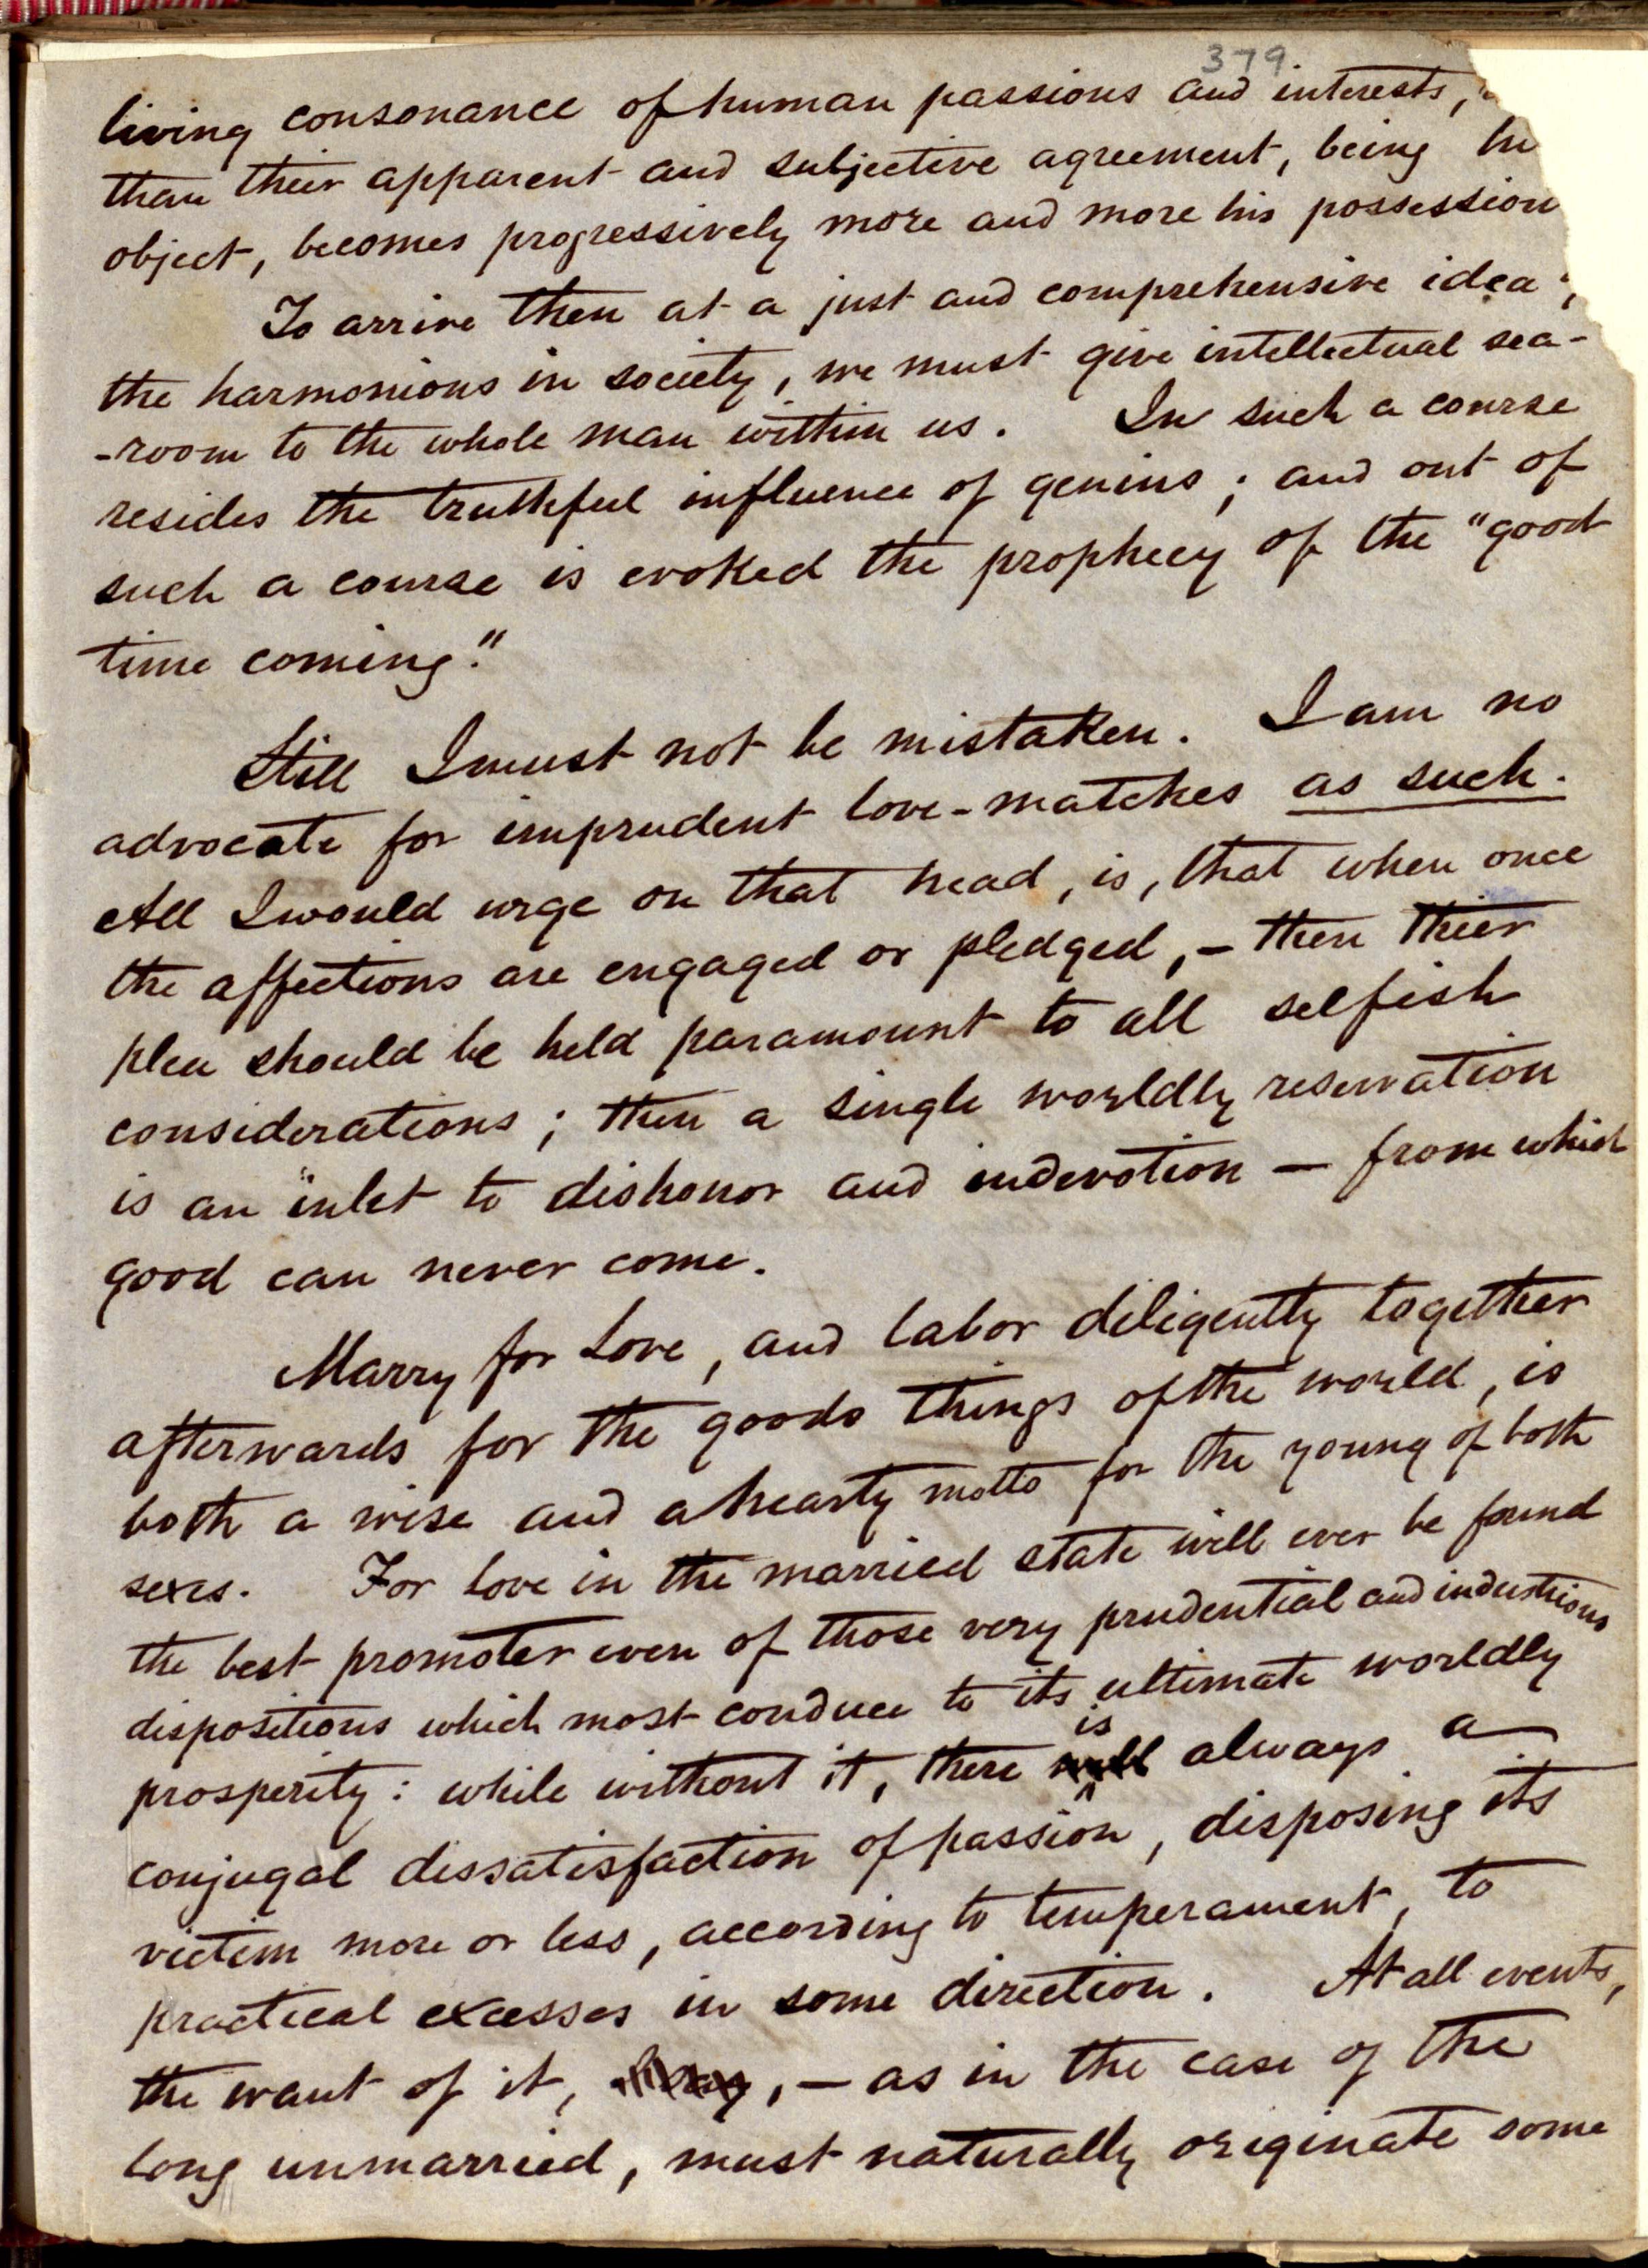 379
living consonance of human passions and interests,
than their apparent and subjective agreement, being
object, becomes progressively more and more his possession
To arrive then at a just and comprehensive idea
the harmonious in society, we must give intellectual sea-
-room to the whole man within us. In such a course
resides the truthful influence of genius; and out of
such a course is evoked the prophecy of the "good
time coming."
Still I must not be mistaken. I am no
advocate for imprudent love-matches as such.
All I would urge on that head, is, that when once
the affections are engaged or pledged, – then thier
plea should be held paramount to all selfish
considerations; then a single worldly reservation
is an inlet to dishonor and indevotion — from which
good can never come.
Marry for Love, and labor diligently together
afterwards for the goods things of the world, is
both a wise and a hearty motto for the young of both
sexes. For Love in the married state will ever be found
the best promoter even of those very prudential and industrious
dispositions which most conduce to its ultimate worldly
prosperity: while without it, there is always a
conjugal dissatisfaction of passion, disposing its
victim more or less, according to temperament, to
practical excesses in some direction. At all events,
the want of it, , – as in the case of the
long unmarried, must naturally originate some